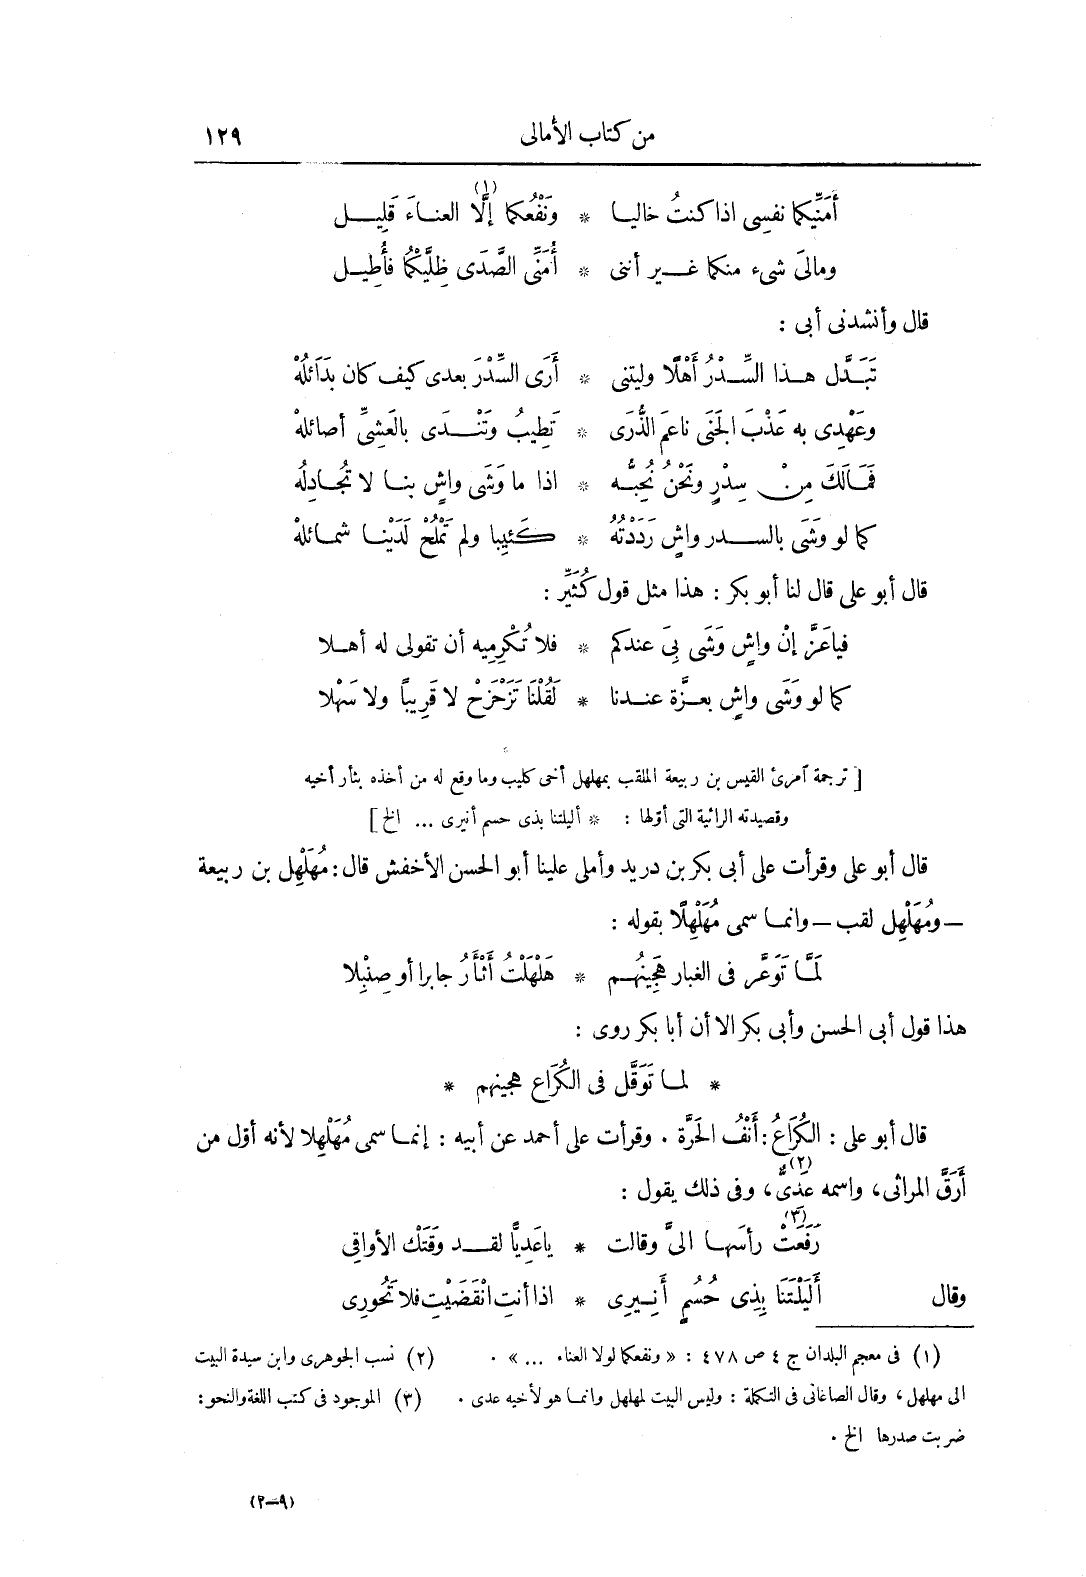 من كتاب الأمالى ١٢٩
أُمَنِّيكما نفسِى اذا كنتُ خاليا * ونَفْعُكما إلَّا العناءَ قَلِيل (١)
ومالىَ شىء منكما غير أننى * أُمَنِّى الصَّدَى ظِلَّيْكُما فأُطِيل
قال وأنشدنى أبى :
تَبَدَّل هذا السِّدْرُ أَهْلًا وليتنى * أَرَى السِّدْرَ بعدى كيف كان بَدَائلُهْ
وعَهْدِى به عَذْبَ الجَنَى ناعمَ الذُّرَى * تَطِيبُ وتَنْدَى بالعَشِىِّ أصائلهْ
فَمَالَكَ مِنْ سِدْرٍ ونَحْنُ نُحِبُّه * اذا ما وَشَى واشٍ بنا لا تُجَادِلُهْ
كما لو وَشَى بالسدر واشٍ رَدَدْتُهُ * كَئيبا ولم تَمْلُحْ لَدَيْنا شمائلهْ
قال أبو على قال لنا أبو بكر : هذا مثل قول كُثَيِّر :
فياعَزَّ إنْ واشٍ وَشَى بِىَ عندكم * فلا تُكْرِمِيه أن تقولى له أهلا
كما لو وَشَى واشٍ بعزَّة عندنا * لَقُلْنَا تَزَحْزَحْ لا قَرِيباً ولا سَهْلا
[ ترجمة آمرئ القيس بن ربيعة الملقب بمهلهل أخى كليب وما وقع له من أخذه بثأر أخيه
وقصيدته الرائية التى أوّلها : * أليلتنا بذى حسم أنيرى ... الخ ]
قال أبو على وقرأت على أبى بكر بن دريد وأملى علينا أبو الحسن الأخفش قال : مُهَلْهِل بن ربيعة
— ومُهَلْهِل لقب — وانما سمى مُهَلْهِلًا بقوله :
لَمَّا تَوَعَّر فى الغبار هَجِينُهم * هَلْهَلْتُ أَثْأَرُ جابرا أو صِنْبِلا
هذا قول أبى الحسن وأبى بكر الا أن أبا بكر روى :
* لما تَوَقَّل فى الكُرَاع هجينهم *
قال أبو على : الكُرَاعُ : أَنْفُ الحَرَّة . وقرأت على أحمد عن أبيه : إنما سمى مُهَلْهِلا لأنه أوّل من
أَرَقَّ المراثى، واسمه عَدىٌّ (٢)، وفى ذلك يقول :
رَفَعَتْ (٣) رأسَها الىَّ وقالت * ياعَدِيًّا لقد وقَتَكْ الأواقِى
وقال أَلَيْلَتَنَا بِذِى حُسُمٍ أَنِيرِى * اذا أنتِ انْقَضَيْتِ فلا تَحُورِى
(١) فى معجم البلدان ج ٤ ص ٤٧٨ : « ونفعكما لولا العناء ... » . (٢) نسب الجوهرى وابن سيدة البيت
الى مهلهل، وقال الصاغانى فى التكملة : وليس البيت لمهلهل وانما هو لأخيه عدى . (٣) الموجود فى كتب اللغة والنحو :
ضربت صدرها الخ .
(٩—٢)